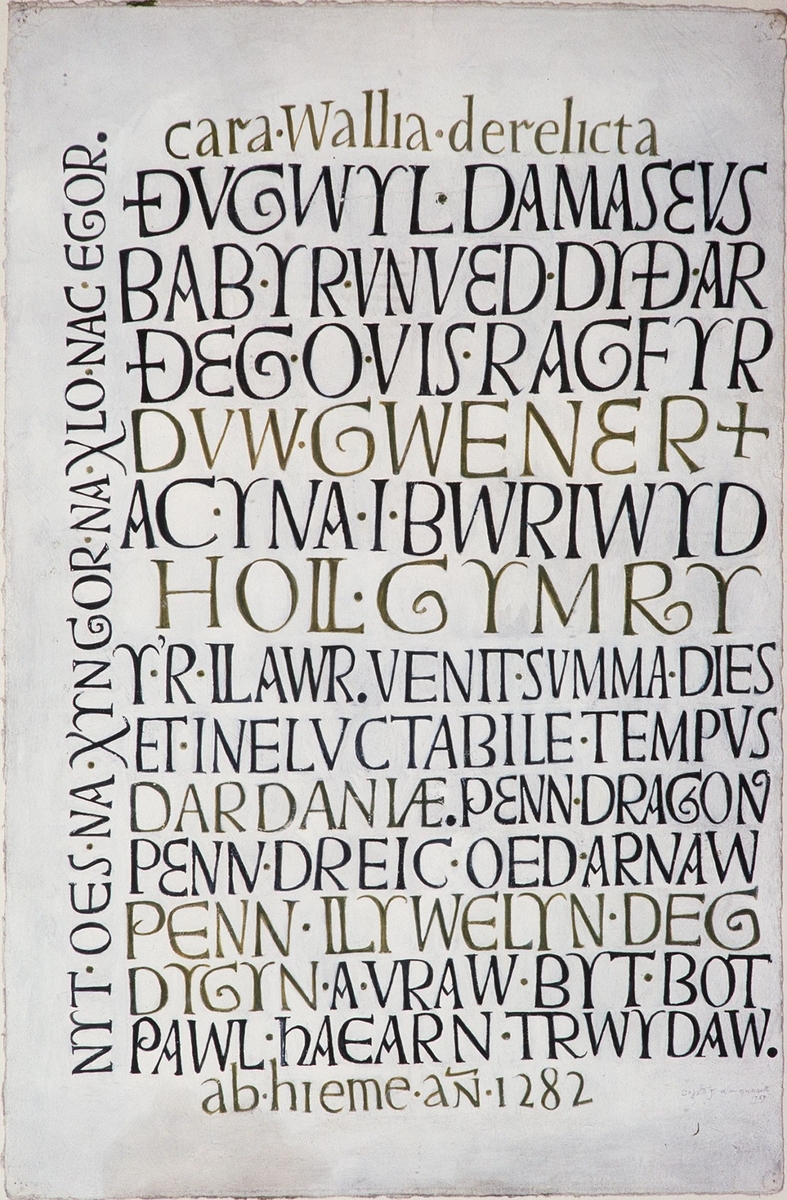 cara·Wallia·derelicta
ĐVGWYL·DAMASEVS
BAB·YR·VNVED·DYĐ·AR
ĐEG·O·VIS·RAGFYR
DVW·GWENER+
AC·YNA·I·BWRIWYD
HOLL·GYMRY
Y'R·LLAWR.VENIT·SVMMA·DIES
ET·INELVCTABILE·TEMPVS
DARDANIÆ.PENN·DRAGON
PENN·DREIC·OED·ARNAW
PENN·LLYWELYN·DEG
DYGYN·A·VRAW·BYT·BOT
PAWL·hAEARN·TRWYDAW.
ab·hieme·añ·1282
NYT·OES·NA·XYNGOR·NA·XLO·NAC·EGOR.